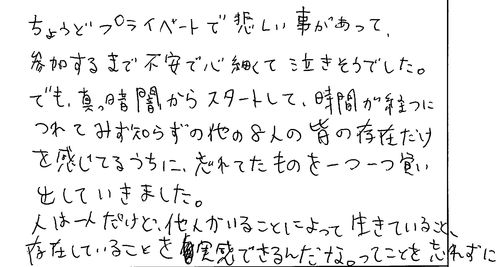 ちょうどプライベートで悲しい事があって、
参加するまで不安で心細くて泣きそうでした。
でも、真っ暗闇からスタートして、時間が経つに
つれてみず知らずの他の8人の皆の存在だけ
を感じてるうちに、忘れてたものを一つ一つ思い
出していきました。
人は一人だけど、他人がいることによって生きていること、
存在していることを実感できるんだな。ってことを忘れずに